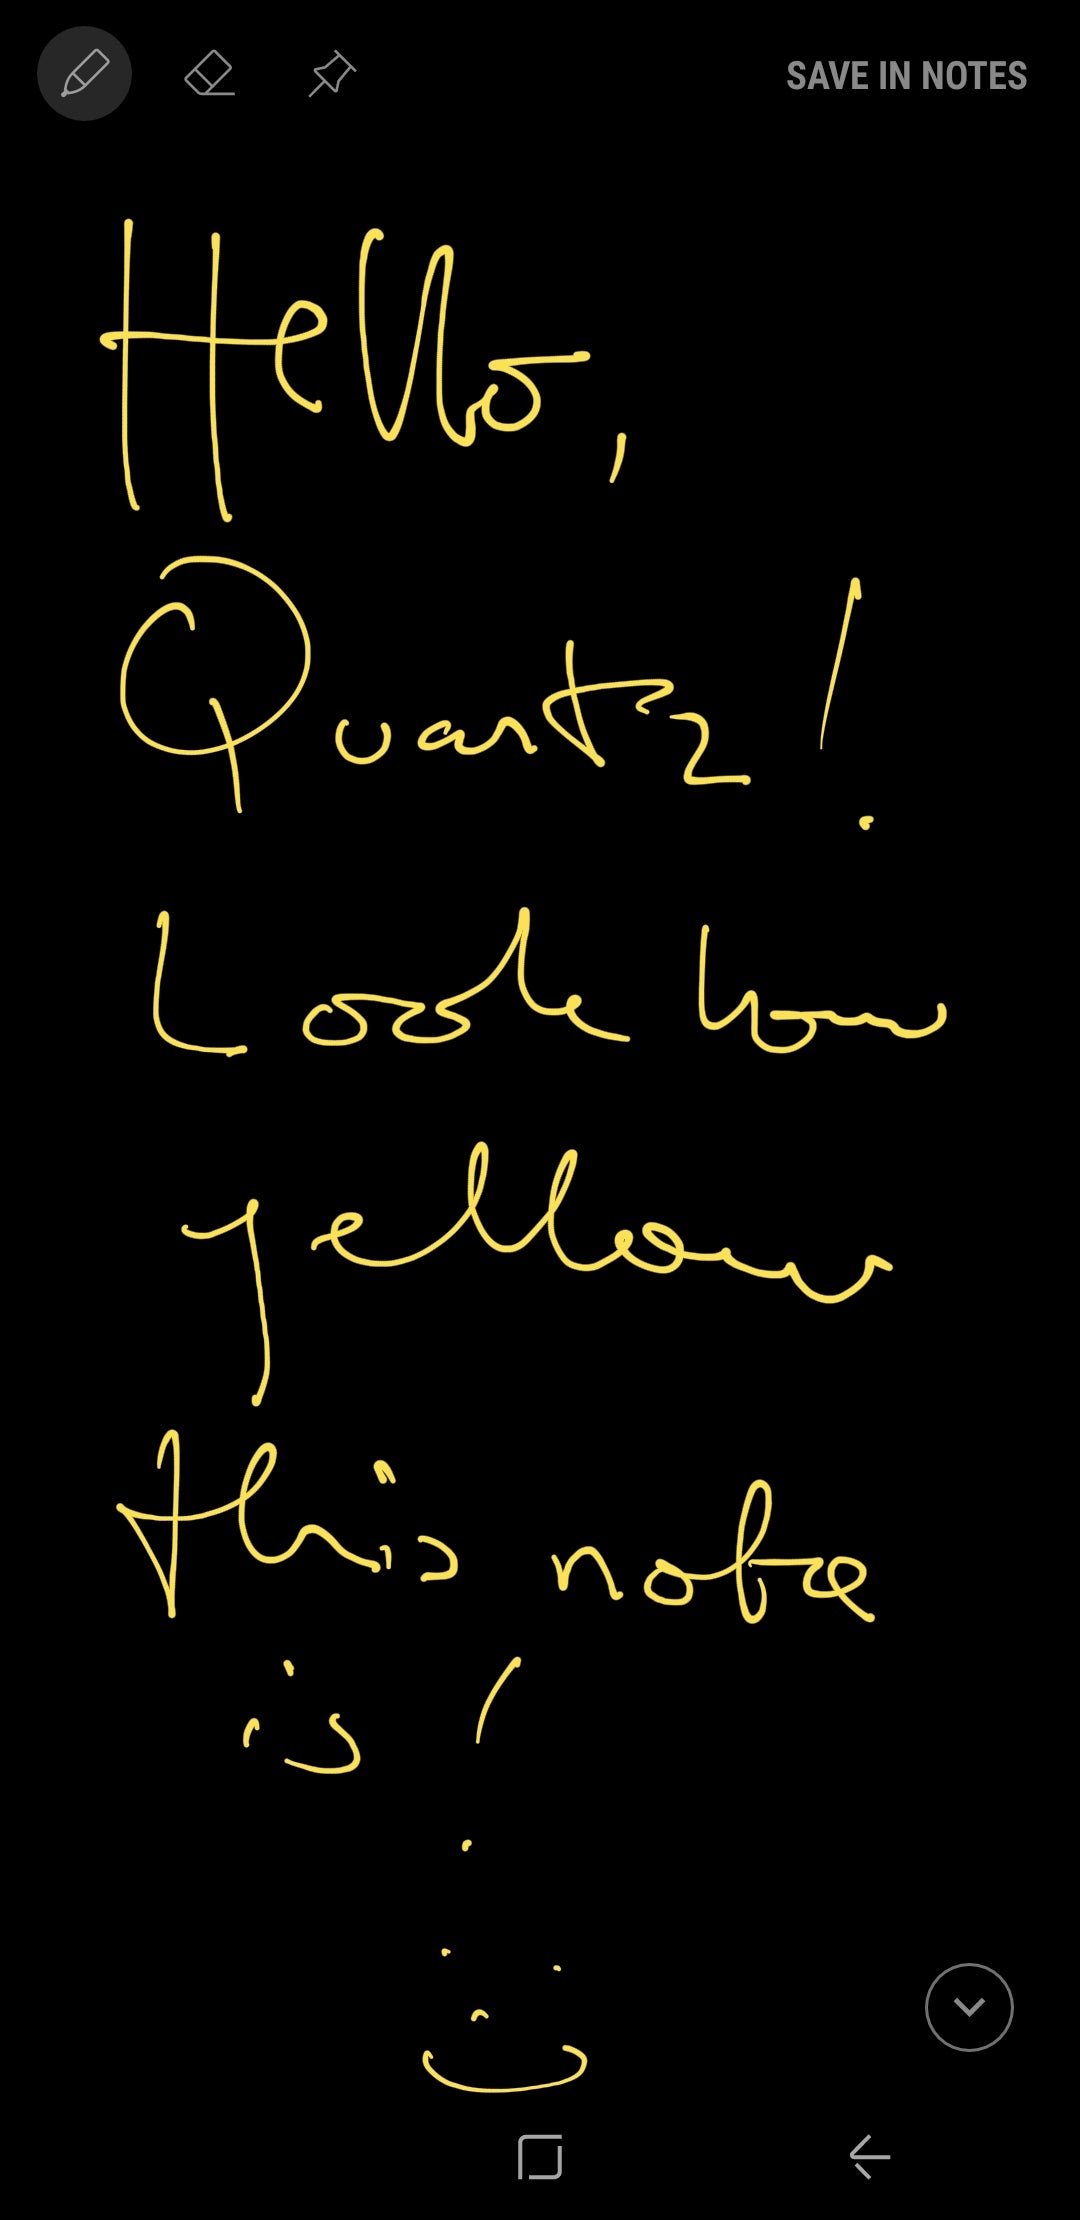 SAVE IN NOTES
Hello,
Quartz!
Look how
yellow
this note
is!